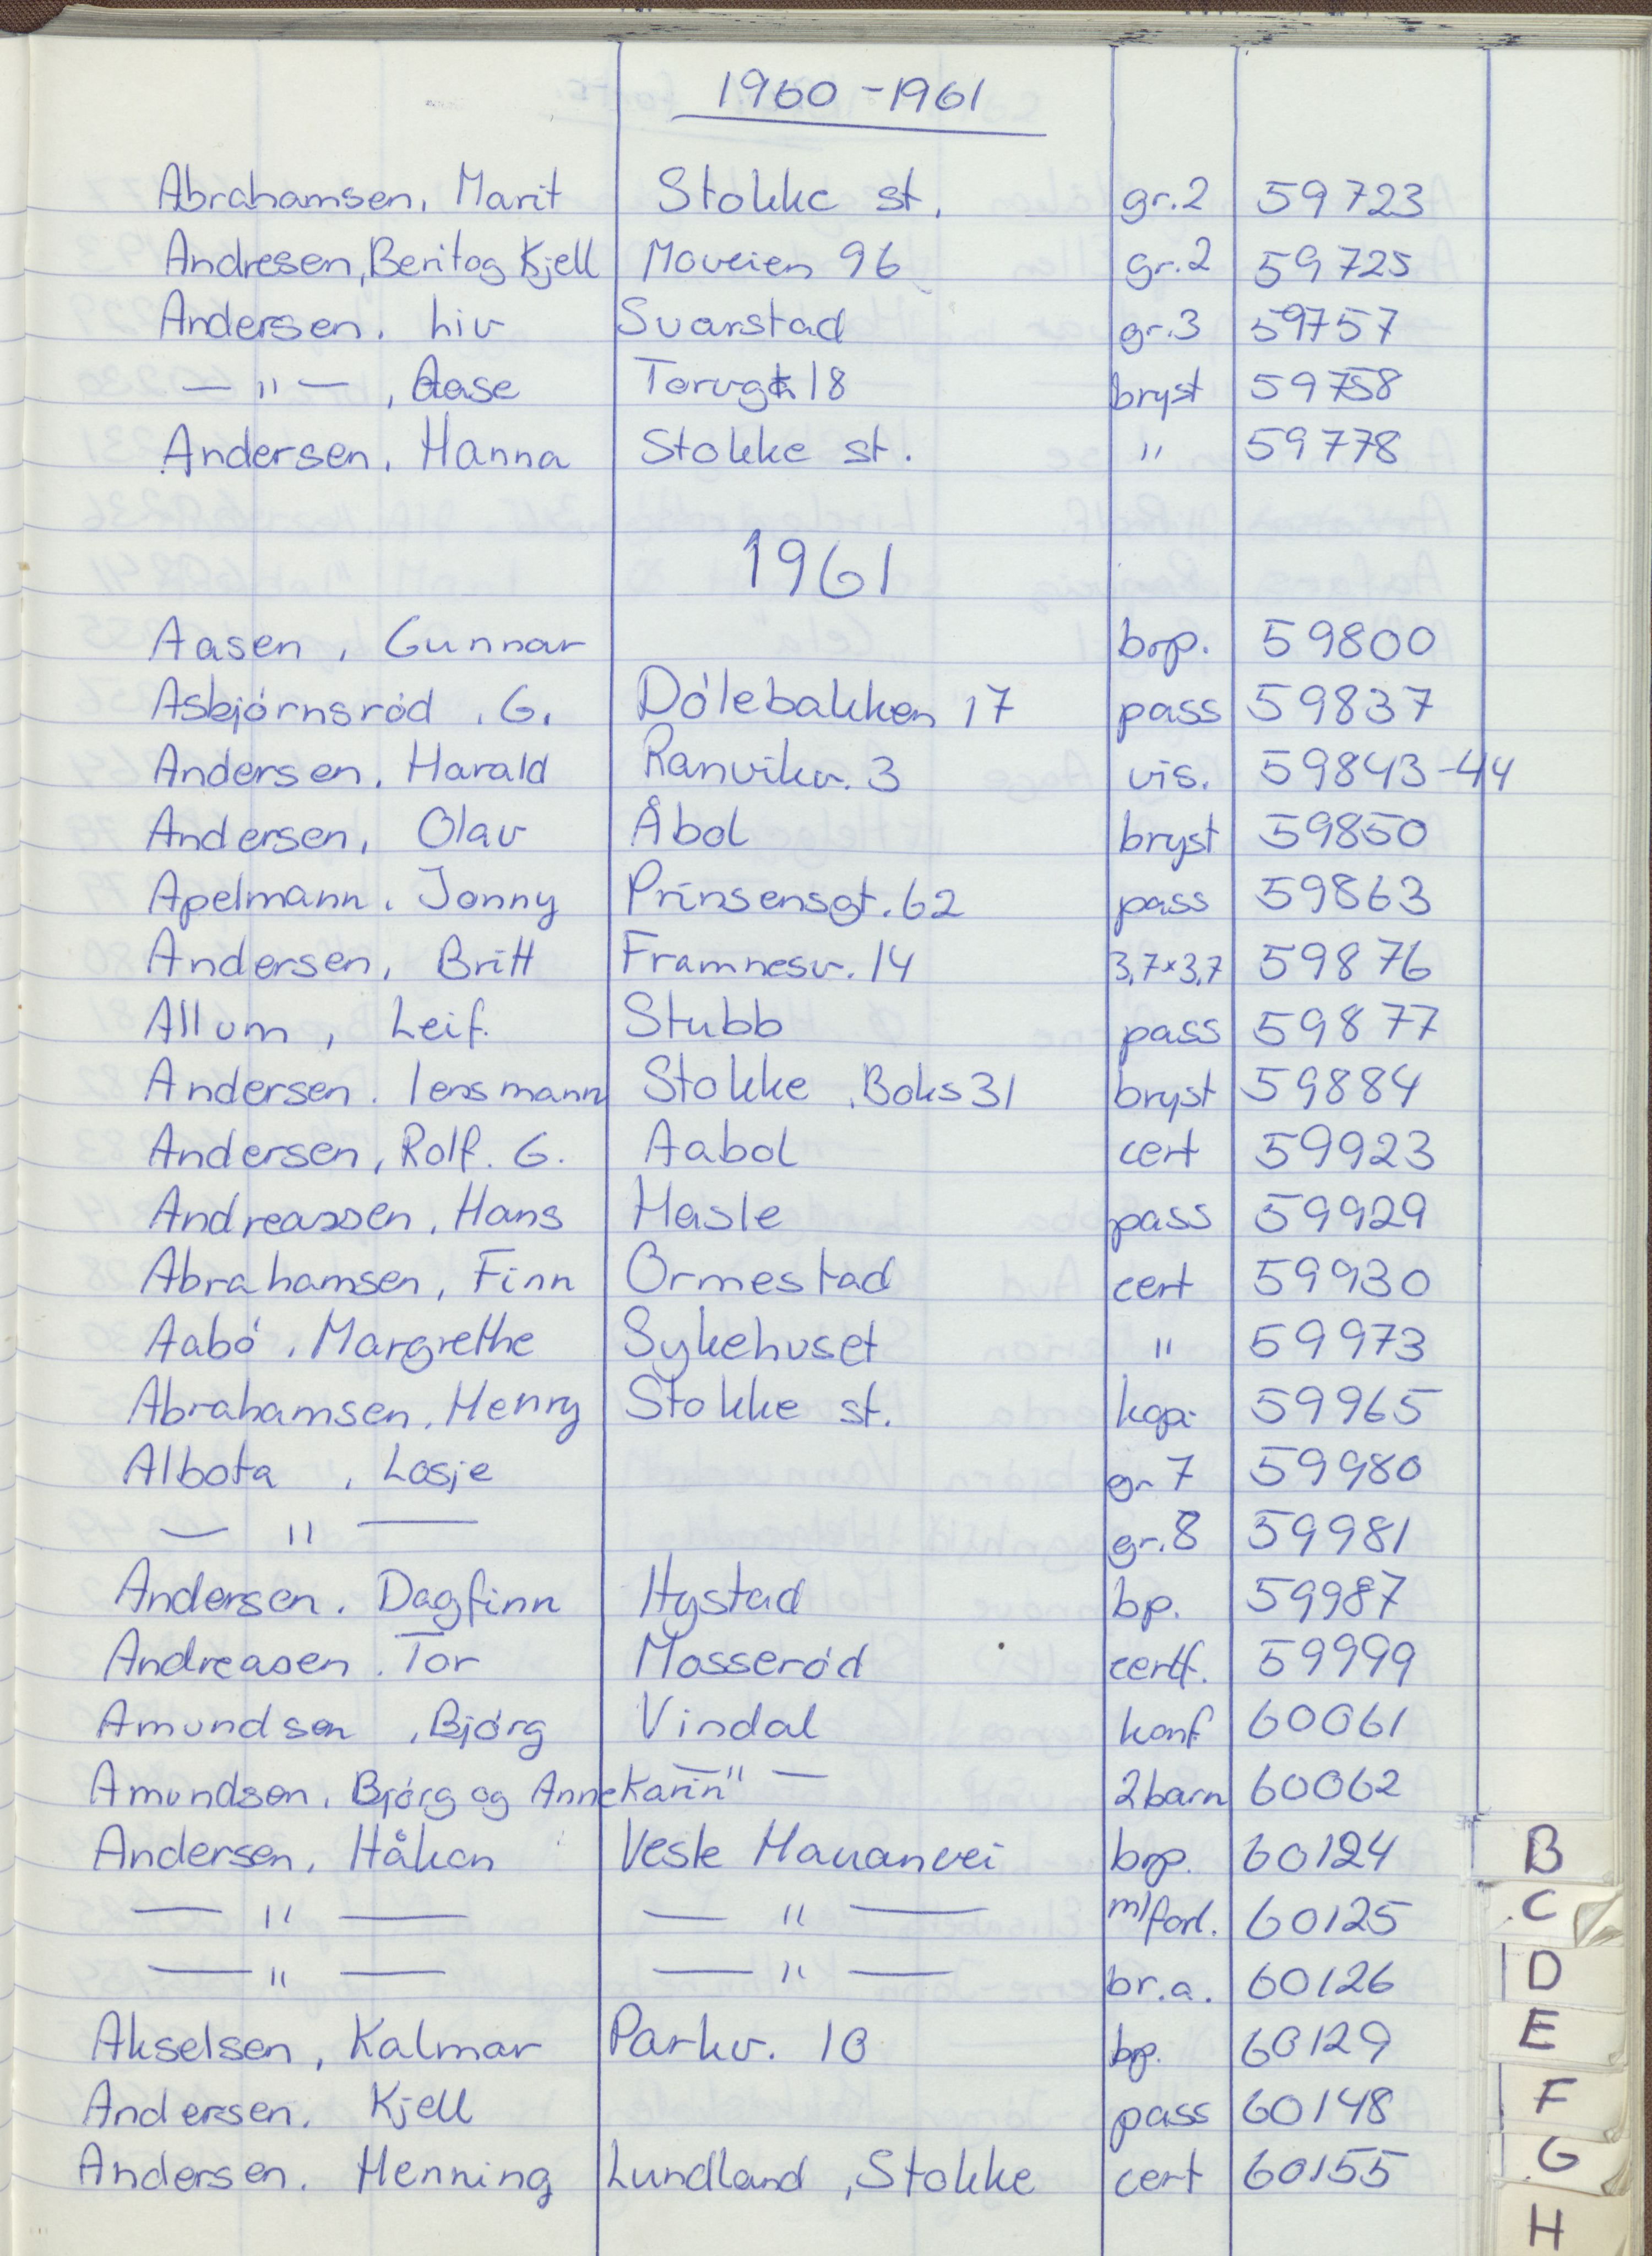 1960 - 1961
Abrahamsen, Marit Stokke st. gr.2 59723
Andresen, Berit og Kjell Moveien 96 gr.2 59725
Andersen, Liv Svarstad gr.3 59757
— " — , Aase Torvgt 18 bryst 59758
Andersen, Hanna Stokke st. " 59778
1961
Aasen, Gunnar brp. 59800
Asbjórnsród, G. Dólebakken 17 pass 59837
Andersen, Harald Ranvikv. 3 vis. 59843-44
Andersen, Olav Åbol bryst 59850
Apelmann, Jonny Prinsensgt. 62 pass 59863
Andersen, Britt Framnesv. 14 3,7×3,7 59876
Allum, Leif. Stubb pass 59877
Andersen. lensmann Stokke, Boks 31 bryst 59884
Andersen, Rolf. G. Aabol cert 59923
Andreassen, Hans Hasle pass 59929
Abrahamsen, Finn Ormestad cert 59930
Aabó, Margrethe Sykehuset " 59973
Abrahamsen, Henry Stokke st. kopi 59965
Albota, Losje gr 7 59980
— " — gr. 8 59981
Andersen. Dagfinn Hystad bp. 59987
Andreasen. Tor Mosseród certf. 59999
Amundsen, Bjórg Vindal konf 60061
Amundsen, Bjórg og Anne Karin — " — 2 barn 60062
Andersen, Håkon Vesle Mauanvei brp. 60124
— " — — " — m/forl. 60125
— " — — " — br.a. 60126
Akselsen, Kalmar Parkv. 10 bp. 60129
Andersen. Kjell pass 60148
Andersen. Henning Lundland, Stokke cert 60155
B
C
D
E
F
G
H